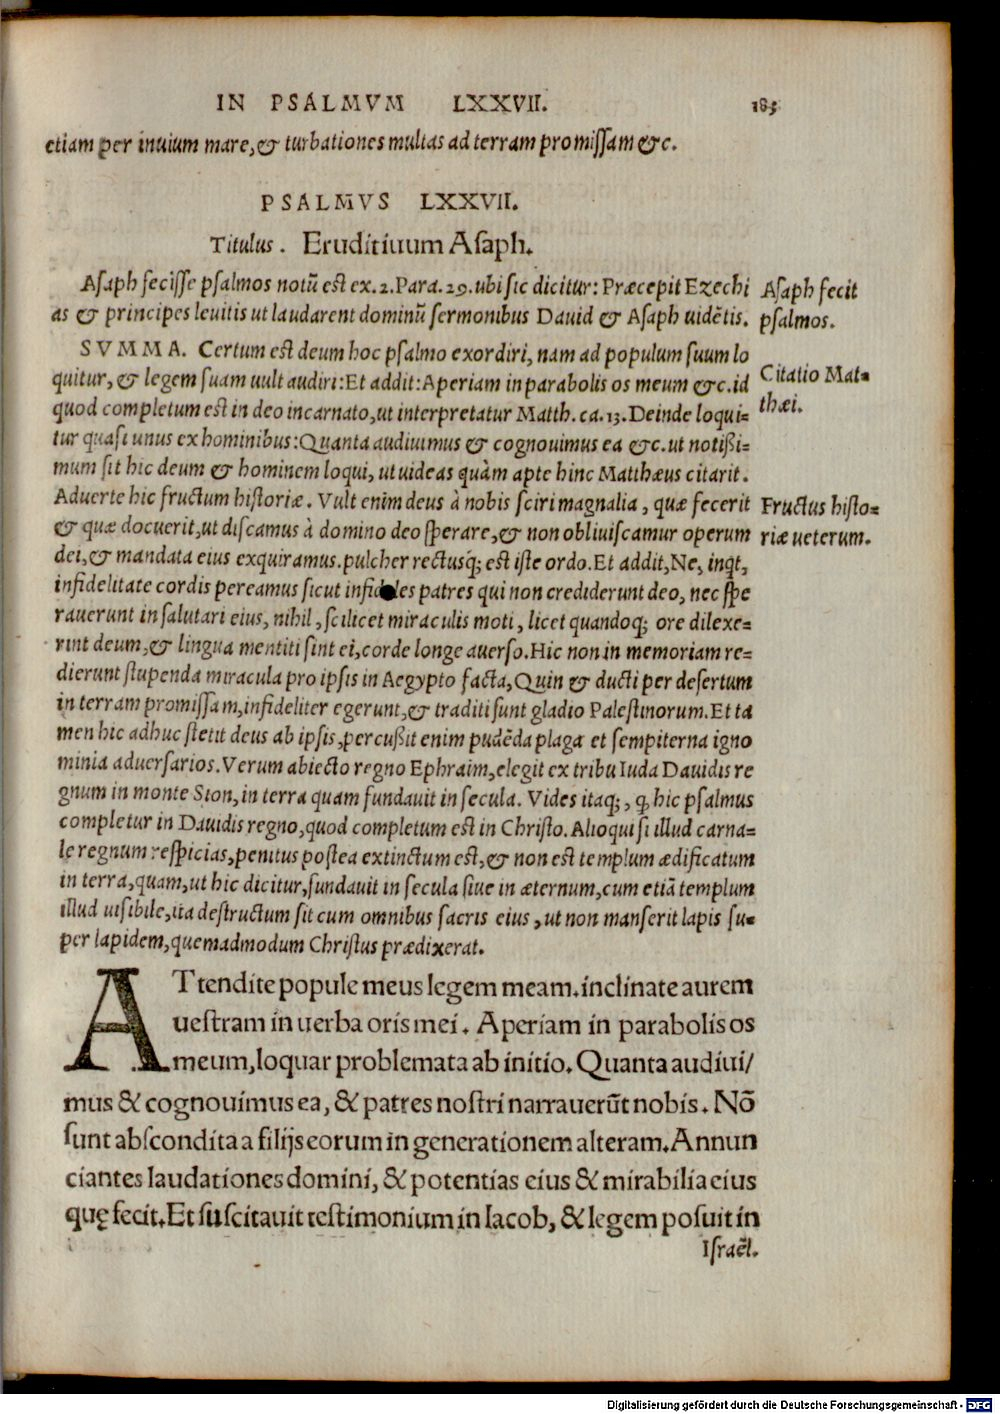 IN PSALMVM LXXVII. 185
etiam per inuium mare, & turbationes multas ad terram promiſſam &c.
PSALMVS LXXVII.
Titulus. Eruditiuum Aſaph.
Aſaph feciſſe pſalmos notū eſt ex. 2. Para. 29. ubi ſic dicitur: Præcepit Ezechi
as & principes leuitis ut laudarent dominū ſermonibus Dauid & Aſaph uidētis.
Aſaph fecit
pſalmos.
SVMMA. Certum eſt deum hoc pſalmo exordiri, nam ad populum ſuum lo
quitur, & legem ſuam uult audiri: Et addit: Aperiam in parabolis os meum &c. id
quod completum eſt in deo incarnato, ut interpretatur Matth. ca. 13. Deinde loqui=
tur quaſi unus ex hominibus: Quanta audiuimus & cognouimus ea &c. ut notißi=
mum ſit hic deum & hominem loqui, ut uideas quàm apte hinc Matthæus citarit.
Citatio Mat=
thæi.
Aduerte hic fructum hiſtoriæ. Vult enim deus à nobis ſciri magnalia, quæ fecerit
& quæ docuerit, ut diſcamus à domino deo ſperare, & non obliuiſcamur operum
dei, & mandata eius exquiramus. pulcher rectusq́; eſt iſte ordo. Et addit, Ne, inq̇t,
Fructus hiſto=
riæ ueterum.
infidelitate cordis pereamus ſicut infideles patres qui non crediderunt deo, nec ſpe
rauerunt in ſalutari eius, nihil, ſcilicet miraculis moti, licet quandoq; ore dilexe=
rint deum, & lingua mentiti ſint ei, corde longe auerſo. Hic non in memoriam re=
dierunt ſtupenda miracula pro ipſis in Aegypto facta, Quin & ducti per deſertum
in terram promiſſam, infideliter egerunt, & traditi ſunt gladio Paleſtinorum. Et ta
men hic adhuc ſtetit deus ab ipſis, percußit enim pudēda plaga et ſempiterna igno
minia aduerſarios. Verum abiecto regno Ephraim, elegit ex tribu Iuda Dauidis re
gnum in monte Sion, in terra quam fundauit in ſecula. Vides itaq;, ꝙ hic pſalmus
completur in Dauidis regno, quod completum eſt in Chriſto. Alioqui ſi illud carna=
le regnum reſpicias, penitus poſtea extinctum eſt, & non eſt templum ædificatum
in terra, quam, ut hic dicitur, fundauit in ſecula ſiue in æternum, cum etiā templum
illud uiſibile, ita deſtructum ſit cum omnibus ſacris eius, ut non manſerit lapis ſu=
per lapidem, quemadmodum Chriſtus prædixerat.
ATtendite popule meus legem meam. inclinate aurem
ueſtram in uerba oris mei. Aperiam in parabolis os
meum, loquar problemata ab initio. Quanta audiui/
mus & cognouimus ea, & patres noſtri narrauerūt nobis. Nō
ſunt abſcondita a filijs eorum in generationem alteram. Annun
ciantes laudationes domini, & potentias eius & mirabilia eius
quę fecit. Et ſuſcitauit teſtimonium in Iacob, & legem poſuit in
Iſraēl.
Digitalisierung gefördert durch die Deutsche Forschungsgemeinschaft - DFG